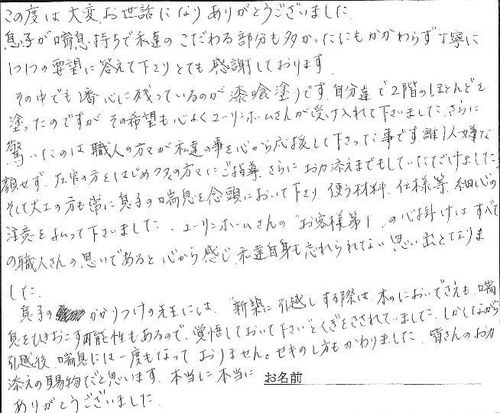 この度は大変お世話になりありがとうございました。
息子が喘息持ちで私達のこだわる部分も多かったにもかかわらず丁寧に
1つ1つの要望に答えて下さりとても感謝しております
その中でも1番心に残っているのが漆喰塗りです。自分達で2階のほとんどを
塗ったのですがその希望も心よくユーリンホームさんが受け入れて下さいました。さらに
驚いたのは職人の方々が私達の事を心から応援して下さった事です誰1人嫌な
顔せず、左官の方をはじめ多の方々にご指導、さらにお力添えまでもしていただけました。
そして大工の方も常に息子の喘息を念頭において下さり使う材料、仕様等、細心の
注意を払って下さいました。ユーリンホームさんの"お客様第1"の心掛けはすべて
の職人さんの思いであると心から感じ私達自身も忘れられない思い出となりま
した。
息子のかかりつけの先生には、"新築に引越しする際は、木のにおいでさえも喘
息をひきおこす可能性もあるので、覚悟しておいて下さい"とくぎをさされていました。しかしながら
引越後、喘息には一度もなっておりません。セキのし方もかわりました。皆さんのお力
添えの賜物だと思います。本当に本当に お名前
ありがとうございました。